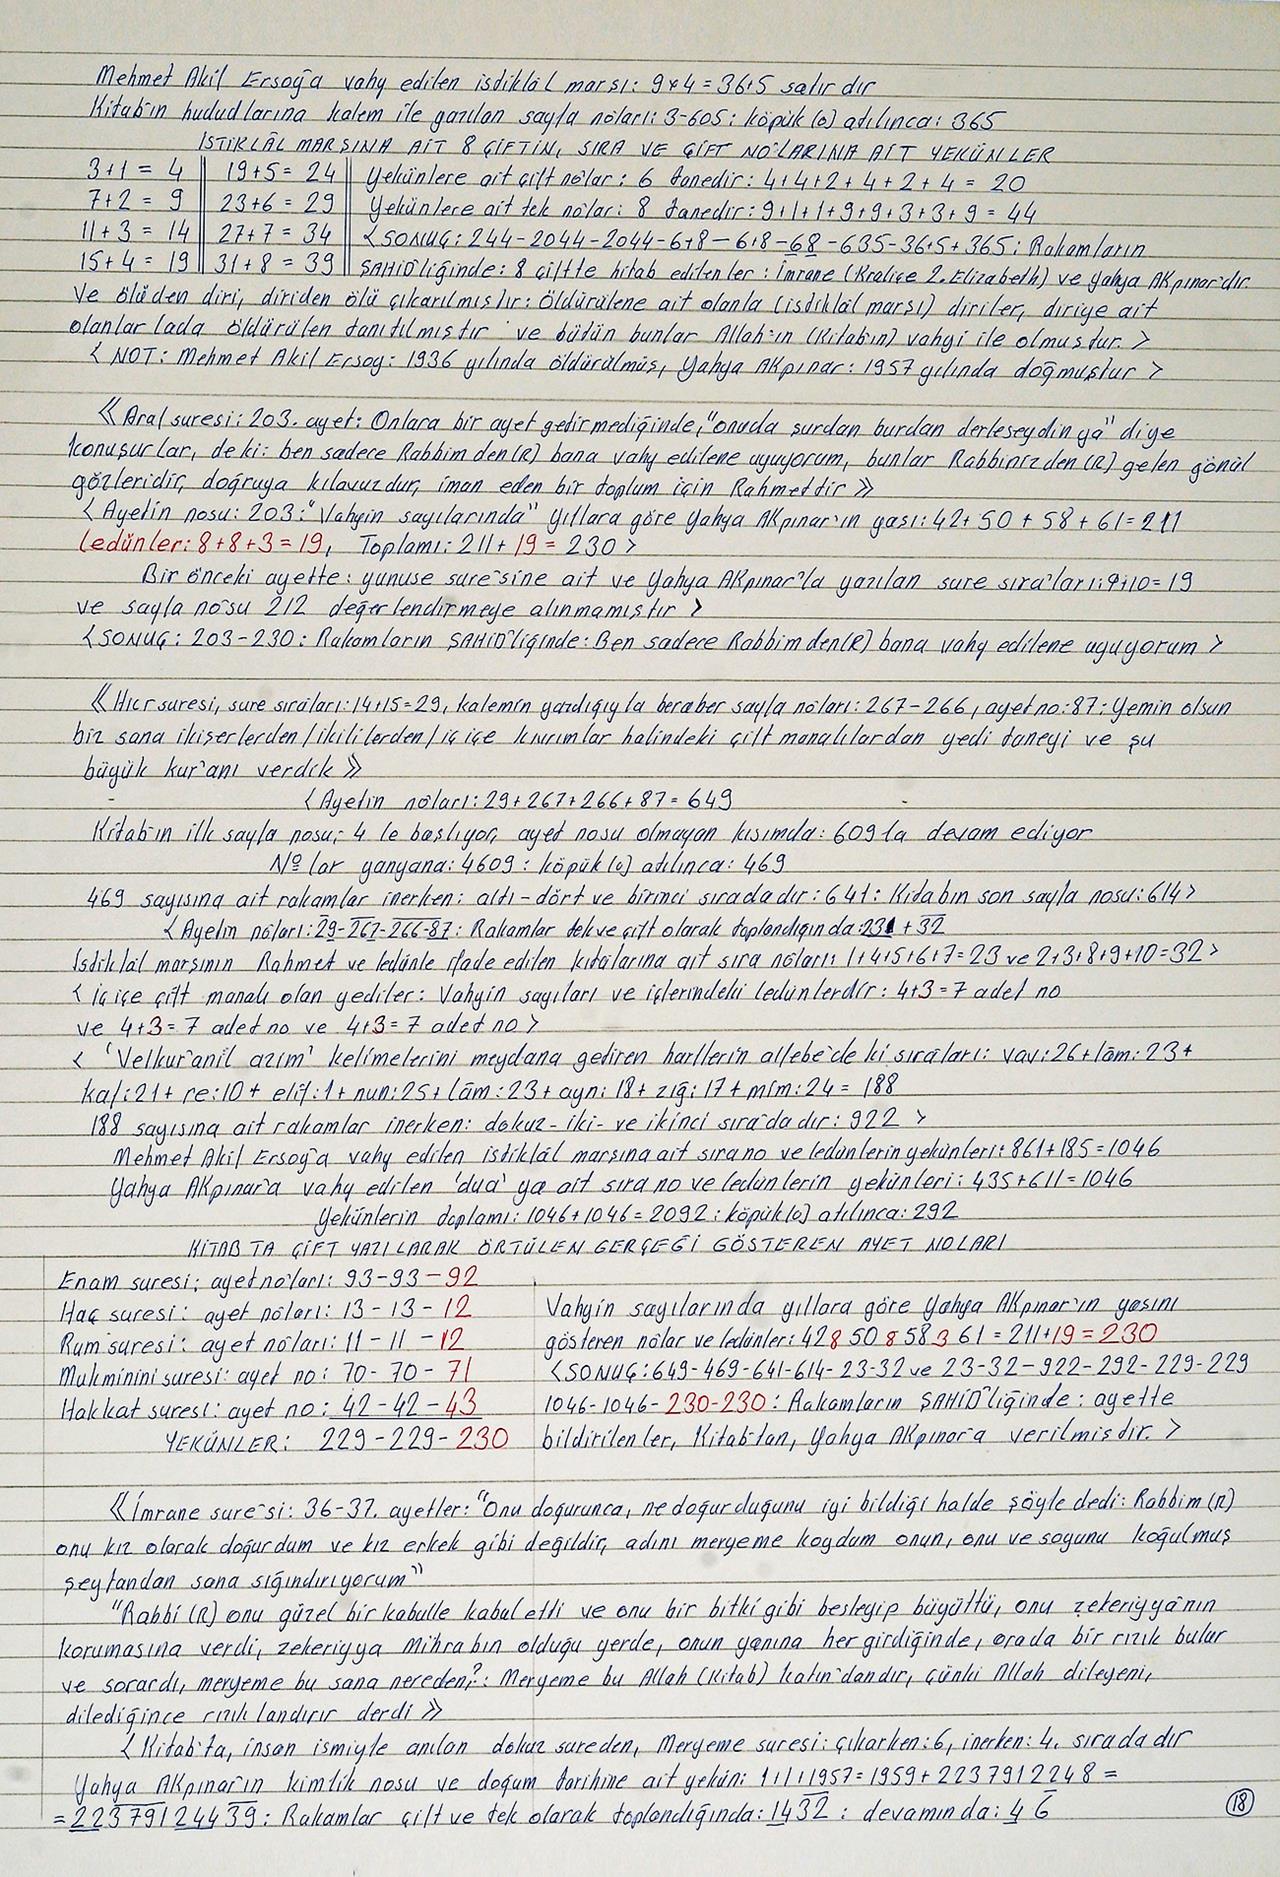 Mehmet Akil Ersoğ'a vahy edilen istiklâl marşı: 9x4=36+5 satır dır
Kitab'ın hududlarına kalem ile yazılan sayfa noları: 3-605: köpük (o) atılınca: 365
İSTİKLÂL MARŞINA AİT 8 ÇİFTİN, SIRA VE ÇİFT NO'LARINA AİT YEKÜNLER
3+1 = 4 || 19+5 = 24 || Yekünlere ait çift nolar: 6 tanedir: 4+4+2+4+2+4 = 20
7+2 = 9 || 23+6 = 29 || Yekünlere ait tek nolar: 8 tanedir: 9+1+1+9+9+3+3+9 = 44
11+3 = 14 || 27+7 = 34 || <SONUÇ: 244-2044-2044-6+8-6+8-68-635-36+5+365: Rakamların
15+4 = 19 || 31+8 = 39 || ŞAHİD'liğinde: 8 çiftte hitab edilenler: İmrane (Kraliçe 2. Elizabeth) ve Yahya AKpınar'dır.
Ve ölüden diri, diriden ölü çıkarılmıştır: Öldürülene ait olanla (istiklâl marşı) diriler, diriye ait
olanlar lada öldürülen tanıtılmıştır ve bütün bunlar Allah'ın (Kitab'ın) vahyi ile olmuştur. >
< NOT: Mehmet Akil Ersoğ: 1936 yılında öldürülmüş, Yahya AKpınar: 1957 yılında doğmuştur >
《 Araf suresi: 203. ayet: Onlara bir ayet getirmediğinde, "onuda şurdan burdan derleseydin ya" diye
konuşurlar, de ki: ben sadece Rabbim den (R) bana vahy edilene uyuyorum, bunlar Rabbinizden (R) gelen gönül
gözleridir, doğruya kılavuzdur, iman eden bir toplum için Rahmettir 》
< Ayetin nosu: 203: "Vahyin sayılarında" Yıllara göre Yahya AKpınar'ın yaşı: 42+50+58+61=211
Ledünler: 8+8+3=19, Toplamı: 211+19=230 >
Bir önceki ayette: yunuse sure'sine ait ve Yahya AKpınar'la yazılan sure sıra'ları: 9+10=19
ve sayfa no'su 212 değerlendirmeye alınmamıştır >
<SONUÇ: 203-230: Rakamların ŞAHİD'liğinde: Ben sadece Rabbim den(R) bana vahy edilene uyuyorum >
《 Hıcr suresi, sure sıraları: 14+15=29, kalemin yazdığıyla beraber sayfa noları: 267-266, ayet no: 87: Yemin olsun
biz sana ikişerlerden/ikililerden/iç içe kıvrımlar halindeki çift manalılardan yedi taneyi ve şu
büyük kur'anı verdik 》
< Ayetin noları: 29+267+266+87=649
Kitab'ın ilk sayfa nosu; 4 le başlıyor, ayet nosu olmayan kısımda: 609 la devam ediyor
Nº lar yanyana: 4609: köpük (o) atılınca: 469
469 sayısına ait rakamlar inerken: altı-dört ve birinci sıradadır: 641: Kitabın son sayfa nosu: 614>
< Ayetin noları: 29-267-266-87: Rakamlar tek ve çift olarak toplandığında: 23 + 32
İstiklâl marşının Rahmet ve ledünle ifade edilen kıtalarına ait sıra noları: 1+4+5+6+7=23 ve 2+3+8+9+10=32 >
< iç içe çift manalı olan yediler: Vahyin sayıları ve içlerindeki ledünlerdir: 4+3=7 adet no
ve 4+3=7 adet no ve 4+3=7 adet no >
< 'Velkur'anil azım' kelimelerini meydana getiren harflerin alfebe'de ki sıraları: vav: 26+lâm: 23+
kaf: 21+ re: 10+ elif: 1+ nun: 25+ lâm: 23+ ayn: 18+ zığ: 17+ mim: 24 = 188
188 sayısına ait rakamlar inerken: dokuz-iki-ve ikinci sıra'dadır: 922 >
Mehmet Akil Ersoğ'a vahy edilen istiklâl marşına ait sıra no ve ledünlerin yekünleri: 861+185=1046
Yahya AKpınar'a vahy edilen 'dua' ya ait sıra no ve ledünlerin yekünleri: 435+611=1046
Yekünlerin toplamı: 1046+1046=2092: köpük (o) atılınca: 292
KİTAB'TA ÇİFT YAZILARAK ÖRTÜLEN GERÇEĞİ GÖSTEREN AYET NOLARI
Enam suresi: ayet no'ları: 93-93-92
Haç suresi: ayet noları: 13-13-12 Vahyin sayılarında yıllara göre Yahya AKpınar'ın yaşını
Rum suresi: ayet noları: 11-11-12 gösteren nolar ve ledünler: 42 8 50 8 58 3 61 = 211+19=230
Mukminini suresi: ayet no: 70-70-71 <SONUÇ: 649-469-641-614-23-32 ve 23-32-922-292-229-229
Hakkat suresi: ayet no: 42-42-43 1046-1046-230-230: Rakamların ŞAHİD'liğinde: ayette
YEKÜNLER: 229-229-230 bildirilenler, Kitab'tan, Yahya AKpınar'a verilmiştir. >
《 İmrane sure'si: 36-37. ayetler: "Onu doğurunca, ne doğurduğunu iyi bildiği halde şöyle dedi: Rabbim (R)
onu kız olarak doğurdum ve kız erkek gibi değildir, adını meryeme koydum onun, onu ve soyunu koğulmuş
şeytandan sana sığındırıyorum"
"Rabbi (R) onu güzel bir kabulle kabul etti ve onu bir bitki gibi besleyip büyüttü, onu zekeriyya'nın
korumasına verdi, zekeriyya mihrabın olduğu yerde, onun yanına her girdiğinde, orada bir rızık bulur
ve sorardı, meryeme bu sana nereden?: Meryeme bu Allah (Kitab) katın'dandır, çünki Allah dileyeni,
dilediğince rızıklandırır derdi 》
< Kitab'ta, insan ismiyle anılan dokuz sureden, Meryeme suresi: çıkarken: 6, inerken: 4. sırada dır
Yahya AKpınar'ın kimlik nosu ve doğum tarihine ait yekün: 1/1/1957=1959+2237912248=
=223791 24439: Rakamlar çift ve tek olarak toplandığında: 1432: devamında: 4 6
18